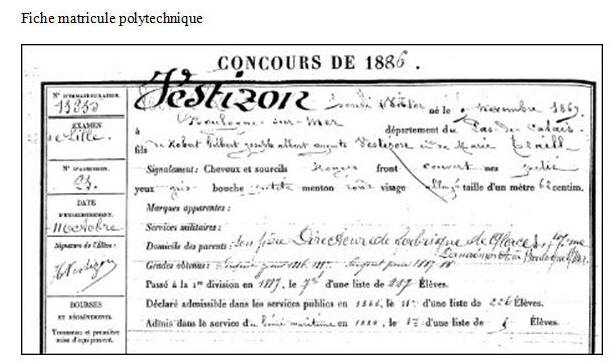 Fiche matricule polytechnique
CONCOURS DE 1886.
N° D'IMMATRICULATION.
EXAMEN
de Lille.
N° D'ADMISSION.
23.
DATE
D'ENREGISTREMENT.
octobre
Signature de l'Élève :
BOURSES
ET DÉGRÈVEMENTS.
Trousseau et première
mise d'équipement.
Vestizon né le 9 Novembre 1867
à Boulogne-sur-Mer département du Pas-de-Calais
fils de Robert Gilbert Joseph Albert Auguste Vestizon et de Marie
Signalement: Cheveux et sourcils Rouges front couvert nez
yeux gris bouche petite menton rond visage allongé taille d'un mètre 62 centim.
Marques apparentes :
Services militaires :
Domicile des parents : Son père Directeur de fabrique de Glaces, rue
Boulogne s/Mer.
Grades obtenus : Sergent
Passé à la 1re division en 1887, le 7me d'une liste de 237 Élèves.
Déclaré admissible dans les services publics en 1888, le d'une liste de 226 Élèves.
Admis dans le service du Génie maritime en 1888, le d'une liste de Élèves.